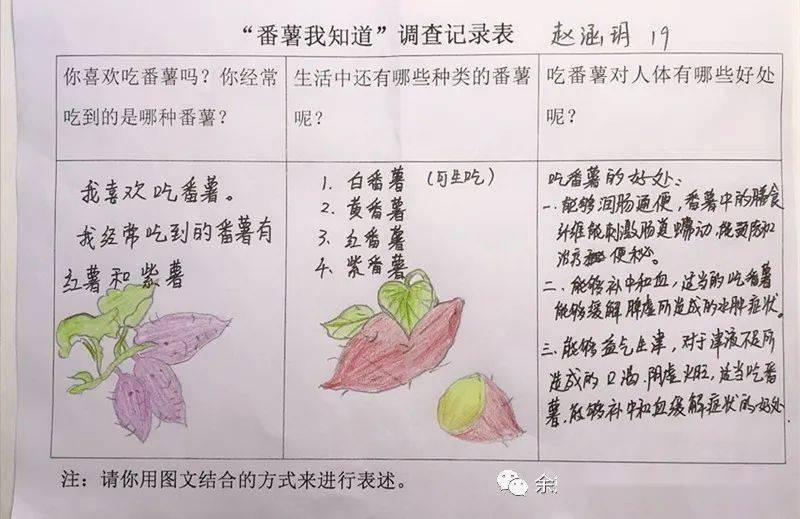 “番薯我知道”调查记录表 赵涵玥 19
你喜欢吃番薯吗？你经常
吃到的是哪种番薯？
生活中还有哪些种类的番薯
呢？
吃番薯对人体有哪些好处
呢？
我喜欢吃番薯。
我经常吃到的番薯有
红薯和紫薯
1. 白番薯 (可生吃)
2. 黄番薯
3. 红番薯
4. 紫番薯
吃番薯的好处：
一.能够润肠通便，番薯中的膳食
纤维能刺激肠道蠕动，能预防和
治疗便秘。
二、能够补中和血，适当的吃番薯
能够缓解脾虚所造成的水肿症状。
三.能够益气生津，对于津液不足所
造成的口渴.阴虚火旺，适当吃番
薯，能够补中和血缓解症状的好处
注：请你用图文结合的方式来进行表述。
余